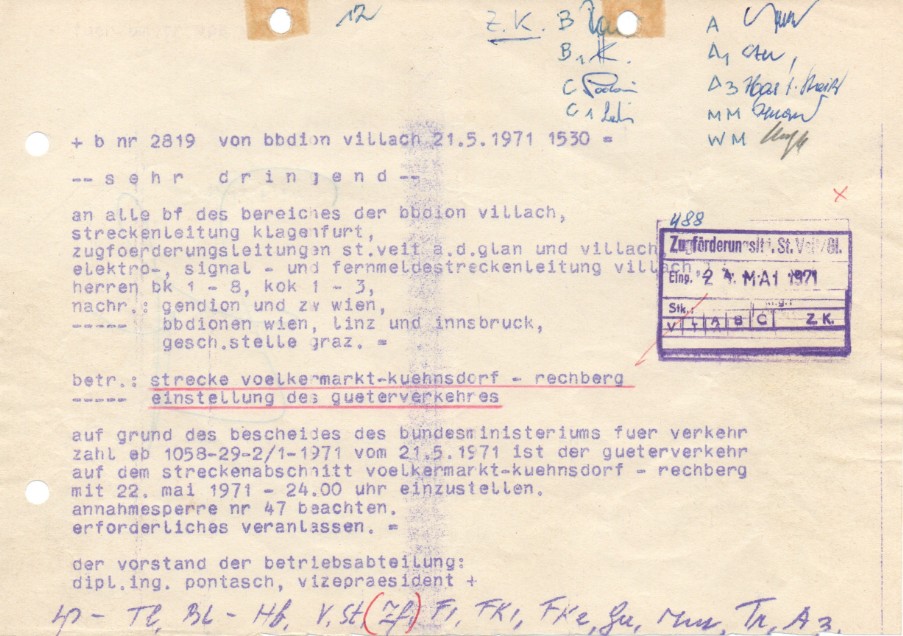 12
Z.K. B
A
B1 K.
A1
C
A3
C1
MM
WM
+ b nr 2819 von bbdion villach 21.5.1971 1530 =
-- s e h r   d r i n g e n d --
an alle bf des bereiches der bbdion villach,
streckenleitung klagenfurt,
zugfoerderungsleitungen st.veit a.d.glan und villach
elektro-, signal - und fernmeldestreckenleitung villach,
herren bk 1 - 8, kok 1 - 3,
nachr.: gendion und zv wien,
----- bbdionen wien, linz und innsbruck,
gesch.stelle graz. =
488
Zugförderungsltg. St. Veit/Gl.
Eing. 24. MAI 1971
Stk.
V L A B C Z.K.
betr.: strecke voelkermarkt-kuehnsdorf - rechberg
----- einstellung des gueterverkehres
auf grund des bescheides des bundesministeriums fuer verkehr
zahl eb 1058-29-2/1-1971 vom 21.5.1971 ist der gueterverkehr
auf dem streckenabschnitt voelkermarkt-kuehnsdorf - rechberg
mit 22. mai 1971 - 24.00 uhr einzustellen.
annahmesperre nr 47 beachten.
erforderliches veranlassen. =
der vorstand der betriebsabteilung:
dipl.ing. pontasch, vizepraesident +
Tl, Bl - Hb, V.St (Zf,) F1, FK1, FK2, Gu, Tr, A3,